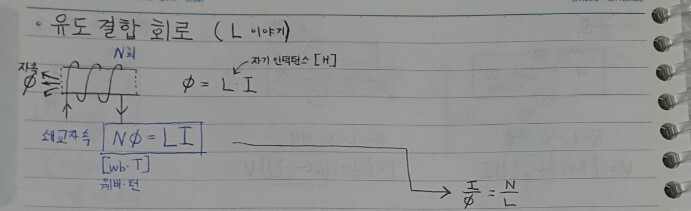 · 유도결합 회로 ( L 이야기)
N회
자속
ϕ
자기 인덕턴스 [H]
ϕ = L·I
쇄교자속 Nϕ = LI
[wb·T]
웨버·턴
I/ϕ = N/L